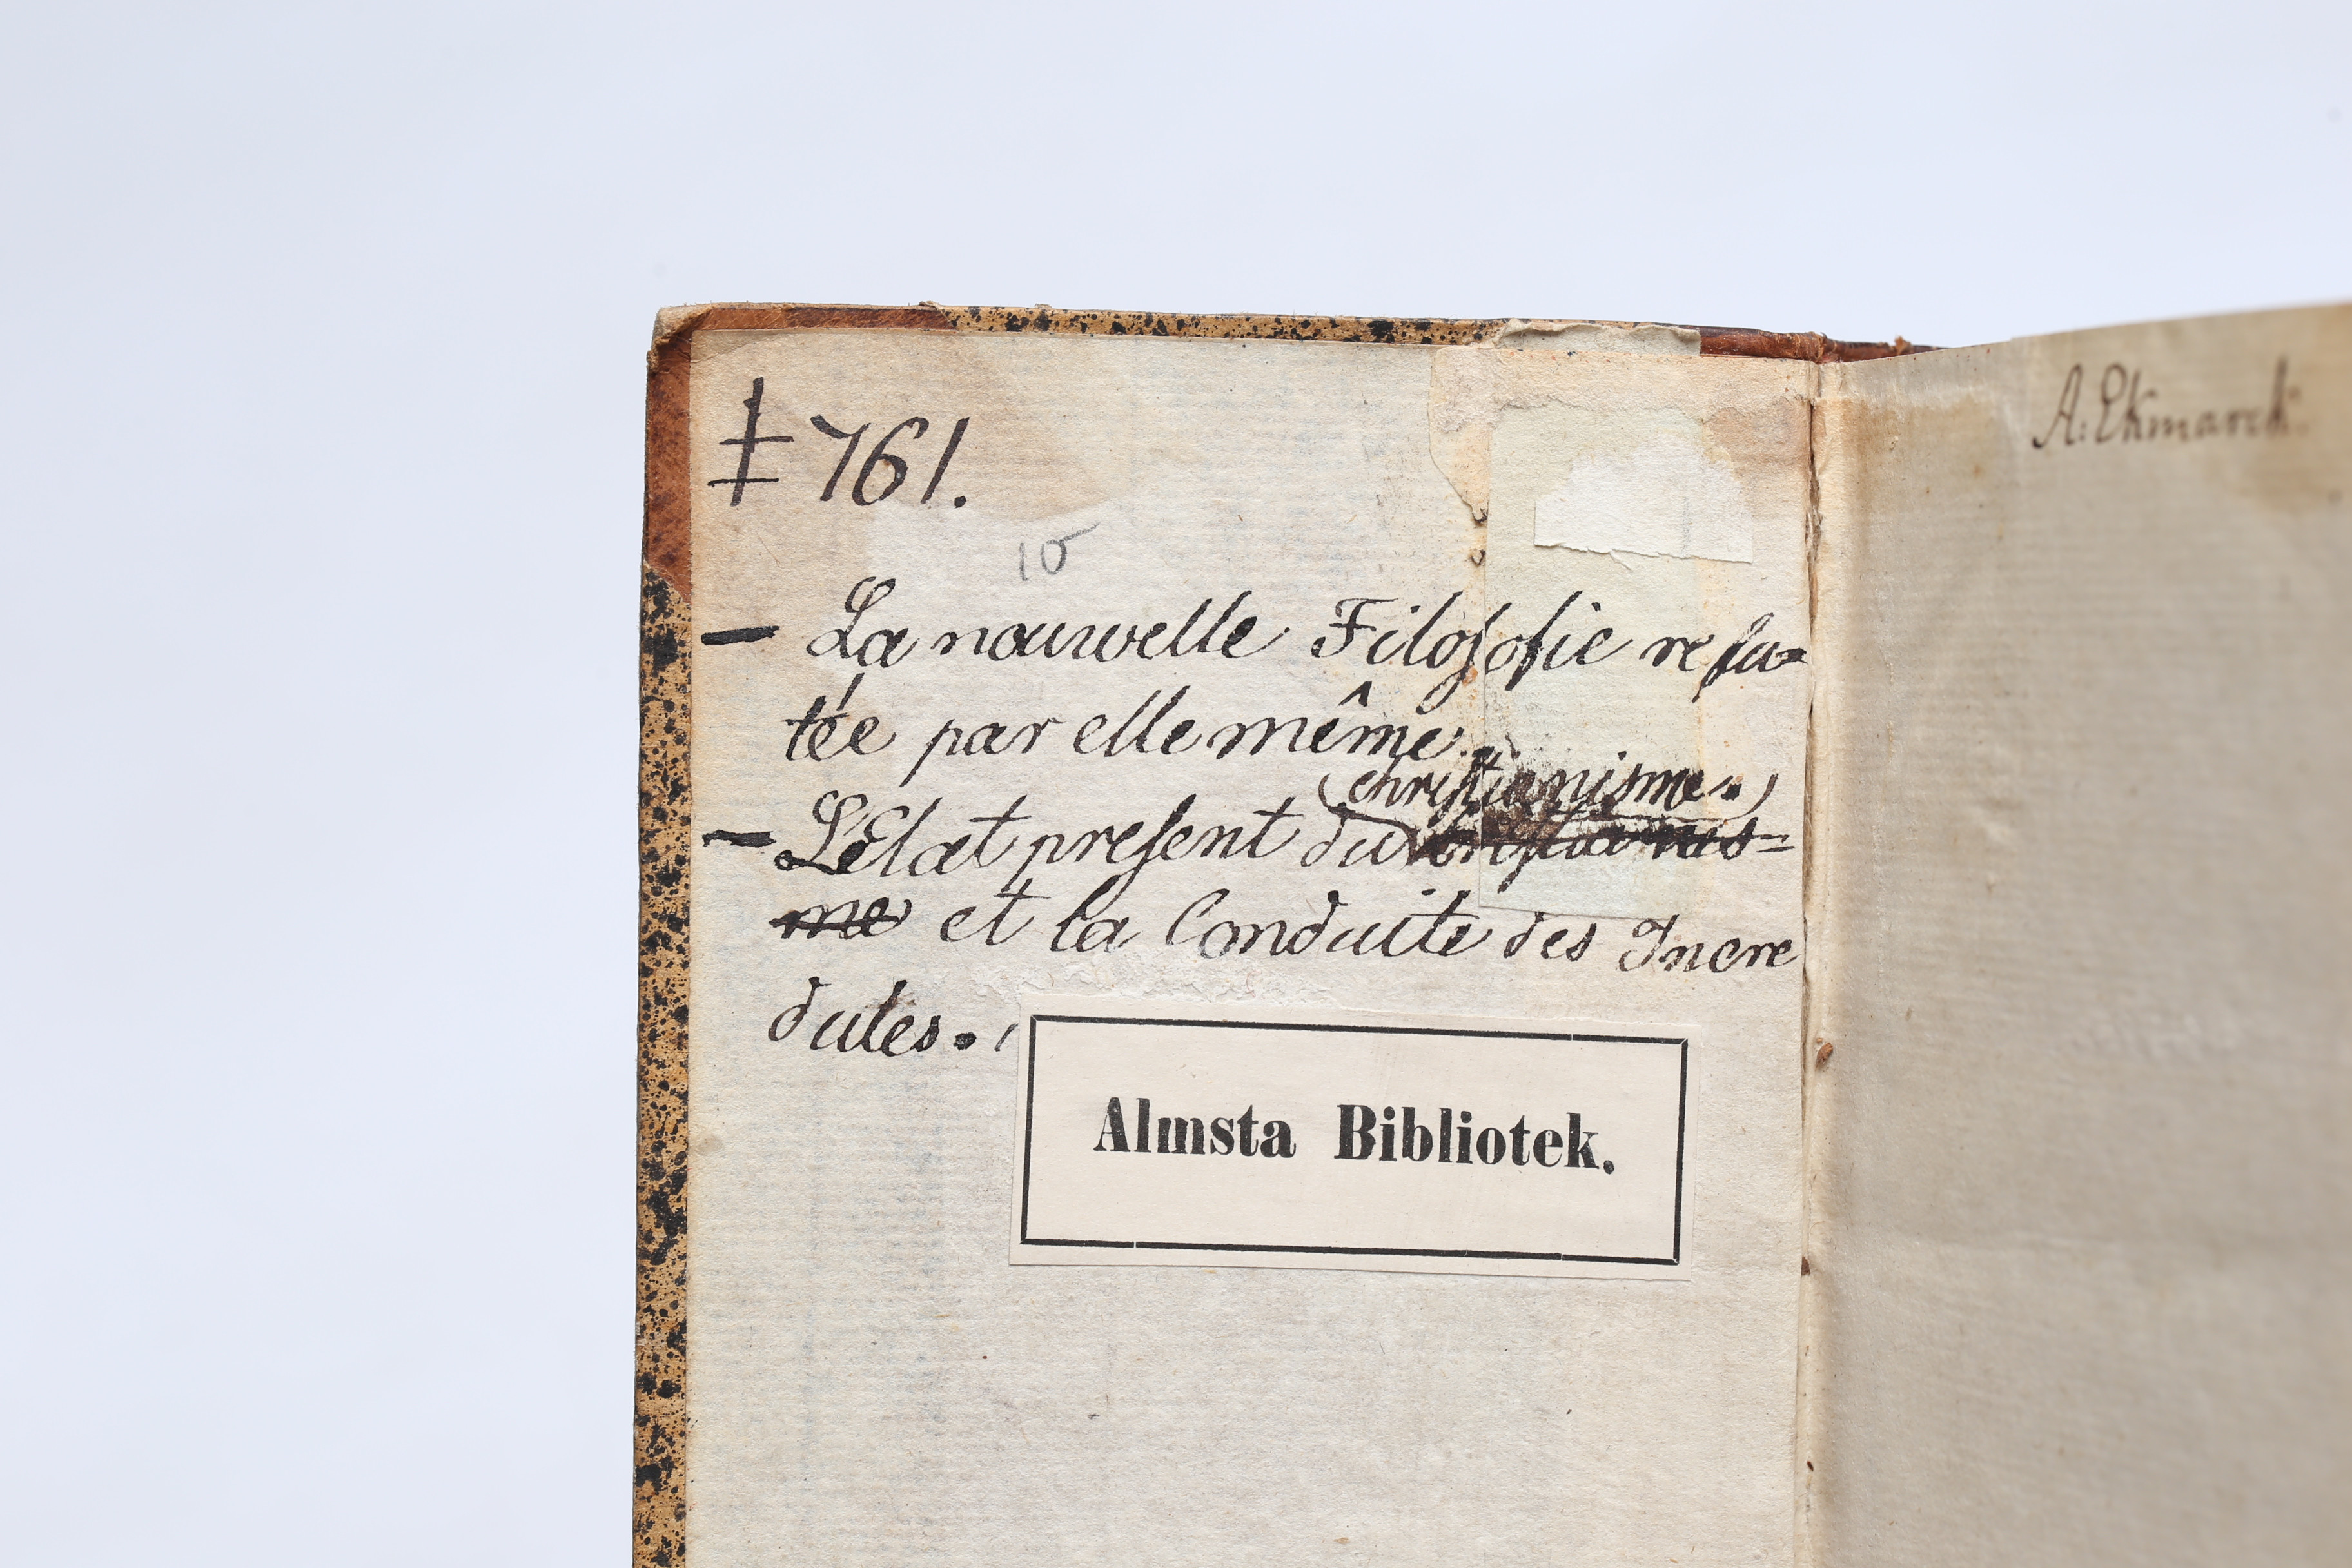 ‡ 761.
10
— La nouvelle Filosofie refu-
tée par elle même.
(christianisme.)
— L'Etat present du christianis=
me et la Conduite des Incre
dules.
Almsta Bibliotek.
A: Ekmarck.